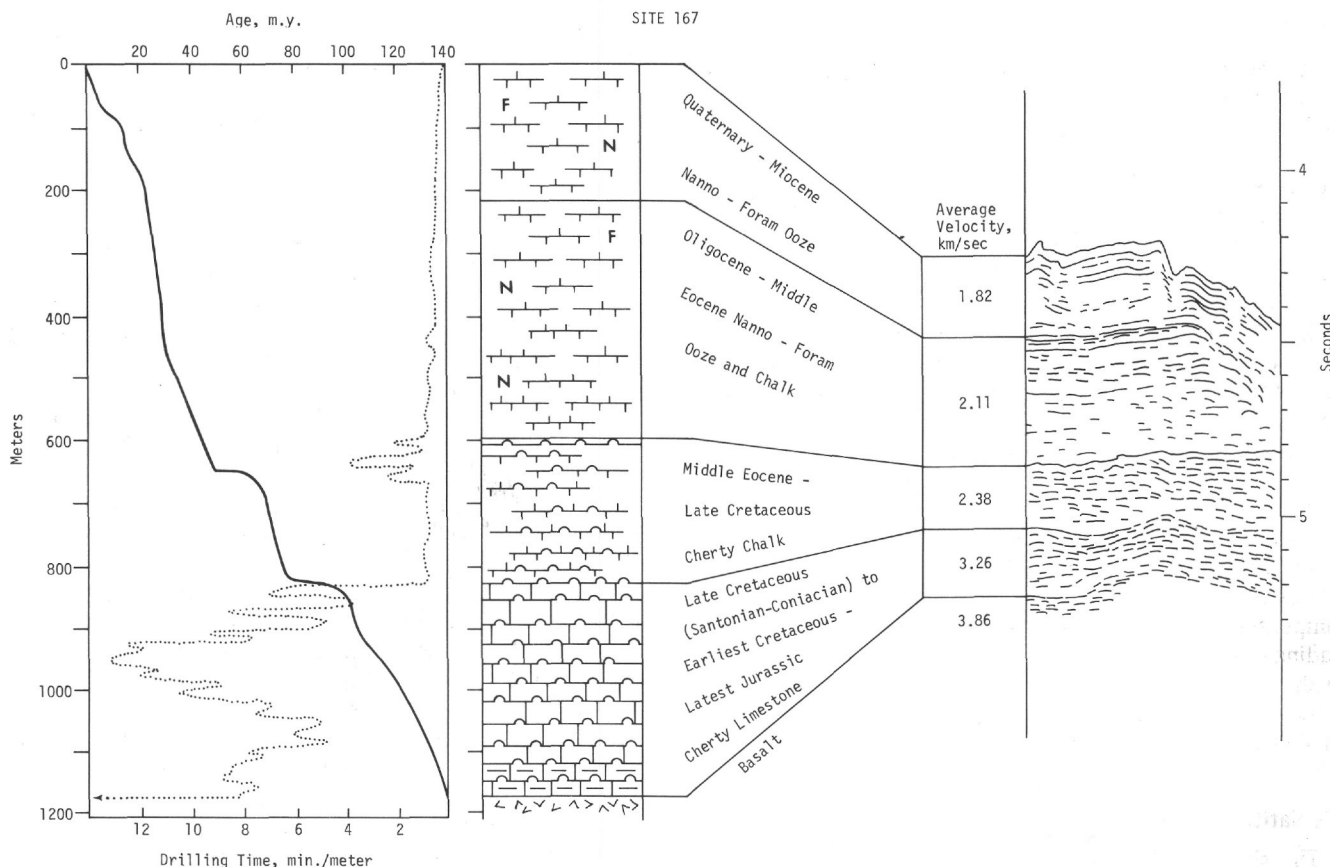 SITE 167
Age, m.y.
20 40 60 80 100 120 140
0
200
400
600
800
1000
1200
Meters
12 10 8 6 4 2
Drilling Time, min./meter
F
N
F
N
N
Quaternary - Miocene
Nanno - Foram Ooze
Oligocene - Middle
Eocene Nanno - Foram
Ooze and Chalk
Middle Eocene -
Late Cretaceous
Cherty Chalk
Late Cretaceous
(Santonian-Coniacian) to
Earliest Cretaceous -
Latest Jurassic
Cherty Limestone
Basalt
Average
Velocity,
km/sec
1.82
2.11
2.38
3.26
3.86
4
5
Seconds